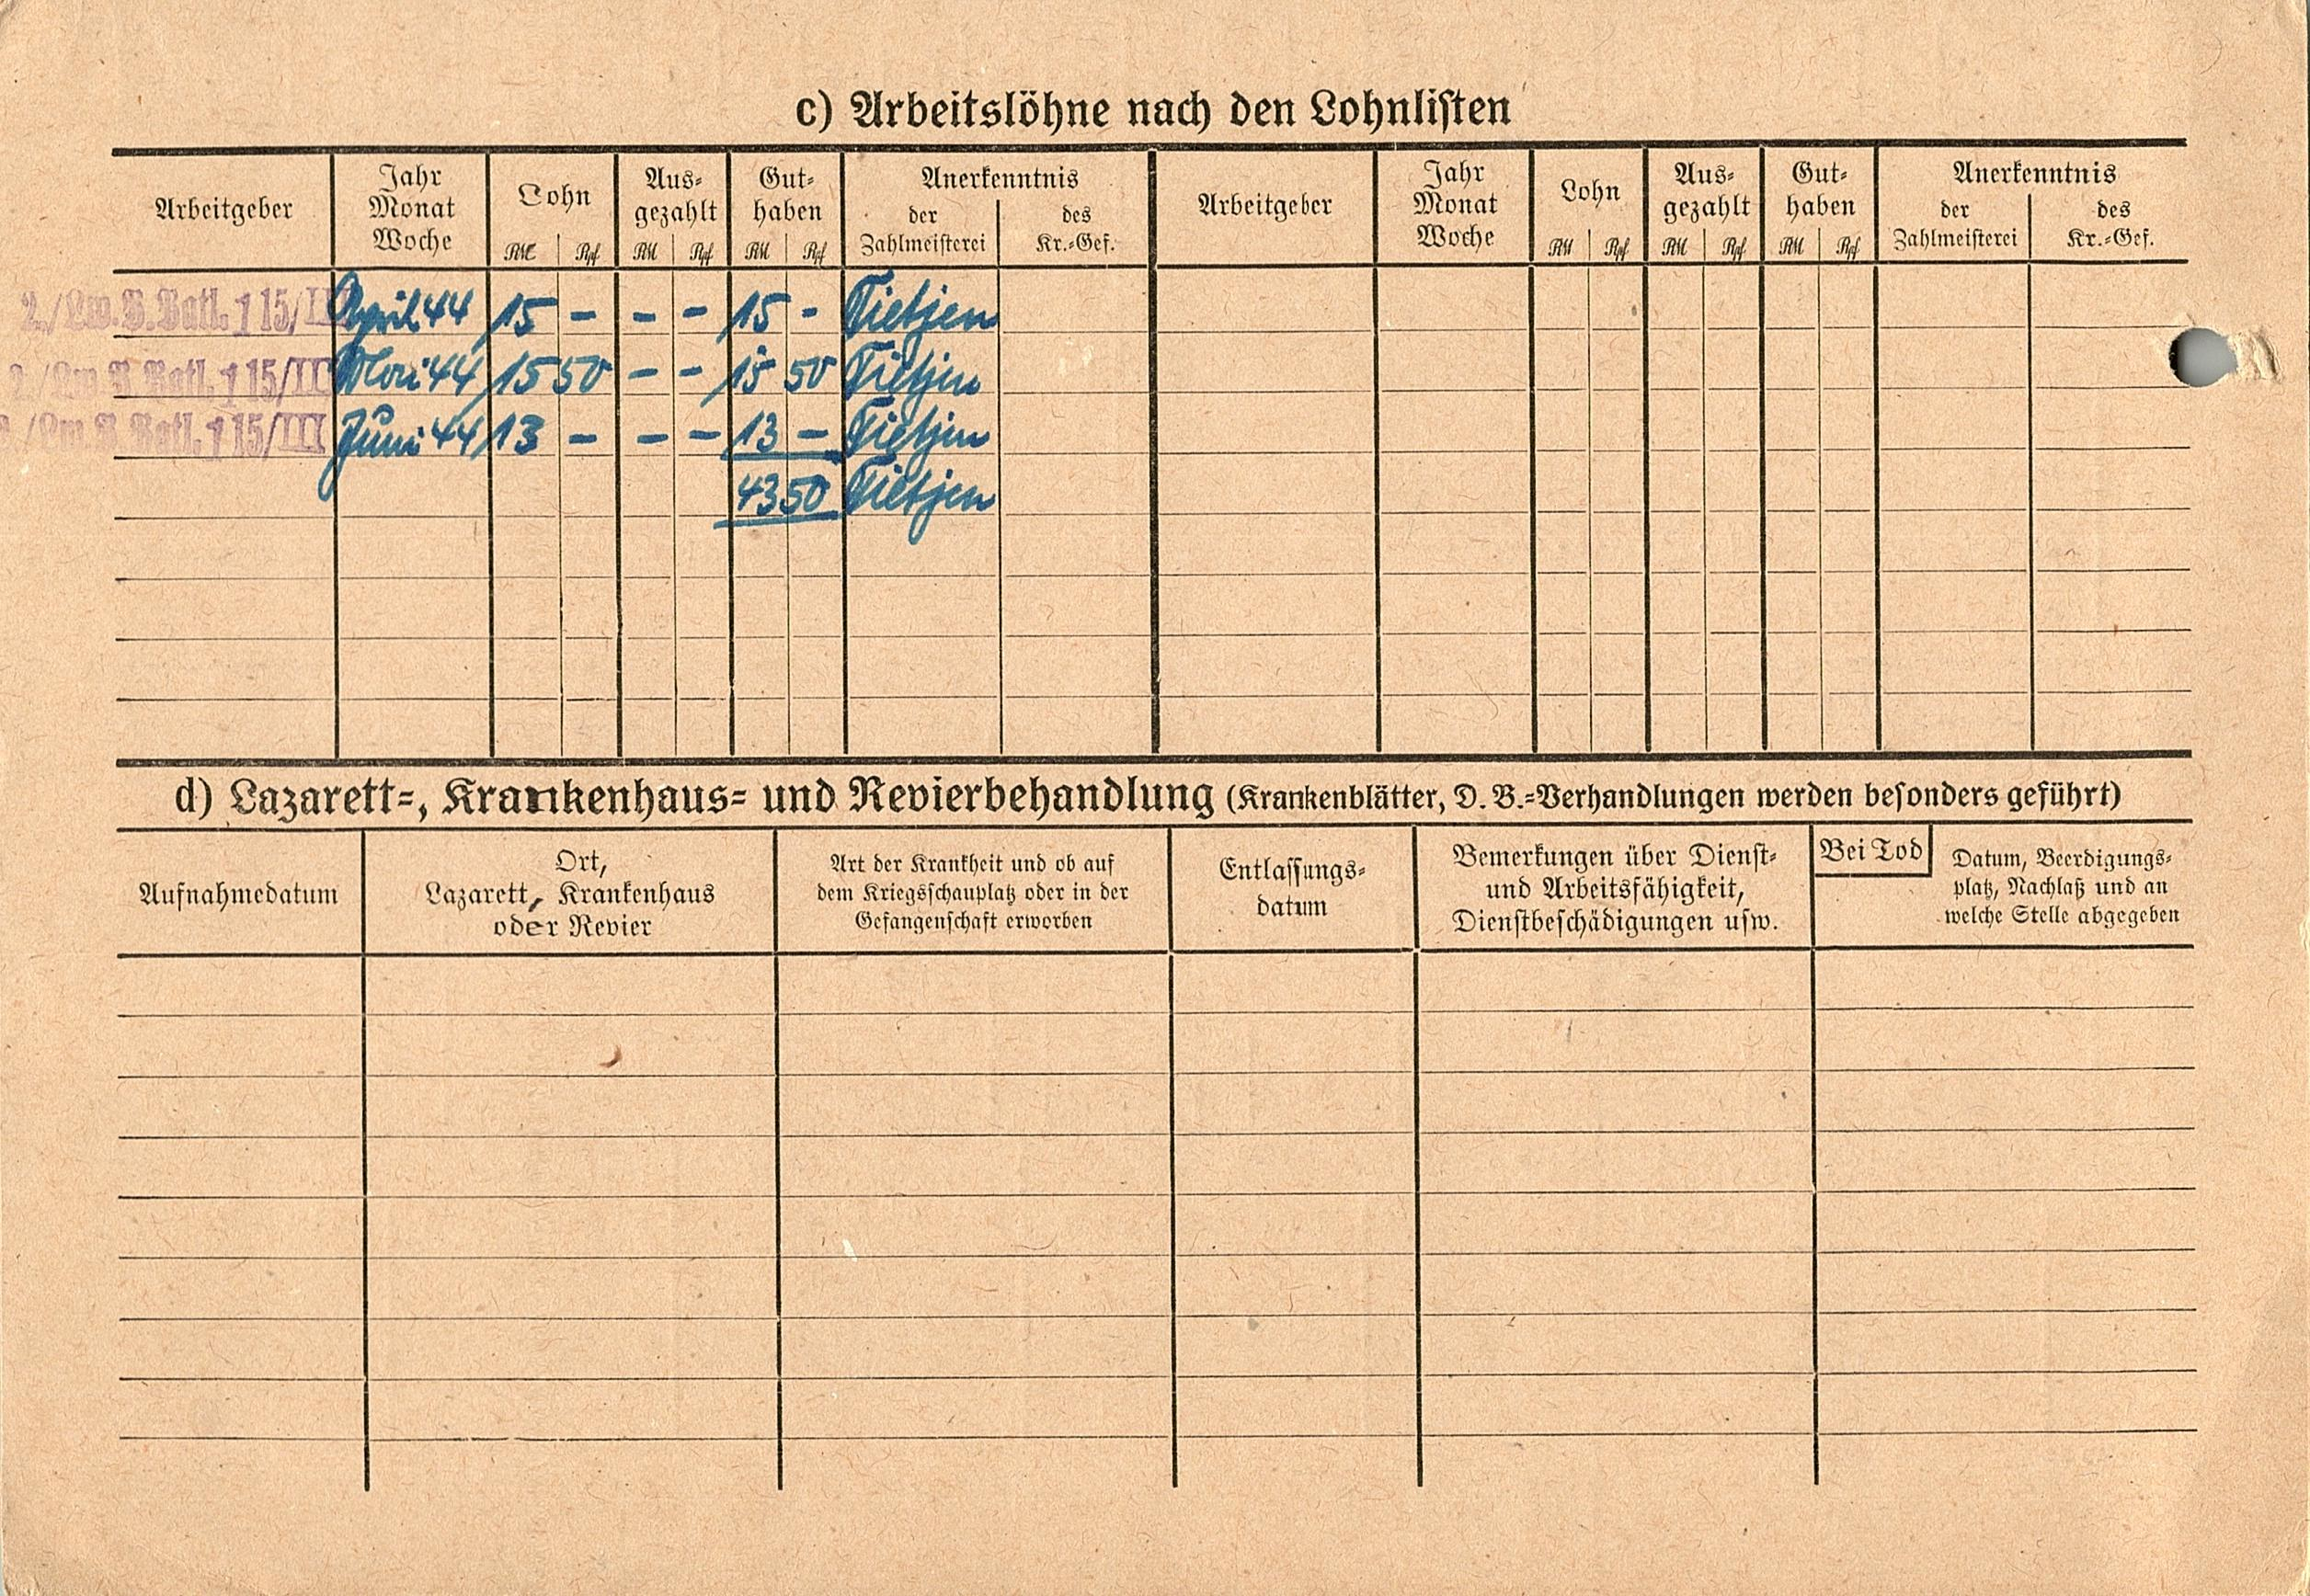 c) Arbeitslöhne nach den Lohnlisten
Arbeitgeber
Jahr
Monat
Woche
Lohn
RM Rpf
Aus-
gezahlt
RM Rpf
Gut-
haben
RM Rpf
Anerkenntnis
der
Zahlmeisterei
des
Kr.-Gef.
Arbeitgeber
Jahr
Monat
Woche
Lohn
RM Rpf
Aus-
gezahlt
RM Rpf
Gut-
haben
RM Rpf
Anerkenntnis
der
Zahlmeisterei
des
Kr.-Gef.
2./Lw. B. Batl. 115/III April 44 15 - - - 15 - Tietjen
2./Lw. B. Batl. 115/III Mai 44 15 50 - - 15 50 Tietjen
/Lw. B. Batl. 115/III Juni 44 13 - - - 13 - Tietjen
43 50 Tietjen
d) Lazarett-, Krankenhaus- und Revierbehandlung (Krankenblätter, D. B.-Verhandlungen werden besonders geführt)
Aufnahmedatum
Ort,
Lazarett, Krankenhaus
oder Revier
Art der Krankheit und ob auf
dem Kriegsschauplatz oder in der
Gefangenschaft erworben
Entlassungs-
datum
Bemerkungen über Dienst-
und Arbeitsfähigkeit,
Dienstbeschädigungen usw.
Bei Tod
Datum, Beerdigungs-
platz, Nachlaß und an
welche Stelle abgegeben